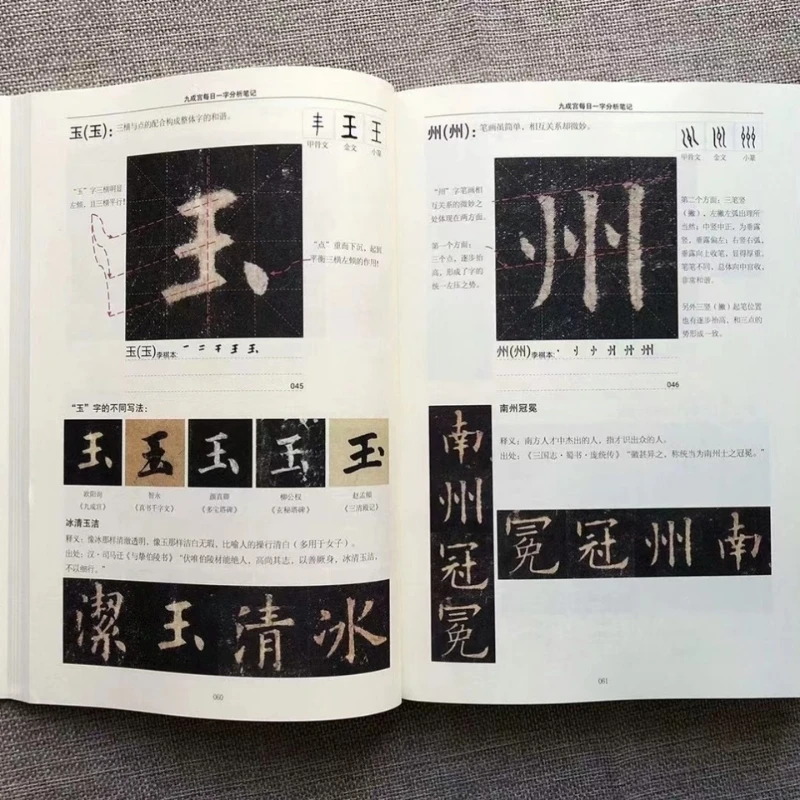 九成宫每日一字分析笔记
玉(玉)：三横与点的配合构成整体字的和谐。
甲骨文 金文 小篆
"玉"字三横明显
左倾，且三横平行！
"点"重而下沉，起到
平衡三横左倾的作用！
玉
玉(玉)李祺本：
045
"玉"字的不同写法：
玉 玉 玉 玉 玉
欧阳询 智永 颜真卿 柳公权 赵孟頫
《九成宫》 《真书千字文》 《多宝塔碑》 《玄秘塔碑》 《三清殿记》
冰清玉洁
释义：像冰那样清澈透明，像玉那样洁白无瑕，比喻人的操行清白（多用于女子）。
出处：汉·司马迁《与挚伯陵书》"伏唯伯陵材能绝人，高尚其志，以善厥身，冰清玉洁，
不以细行。"
潔玉清冰
060
九成宫每日一字分析笔记
州(州)：笔画虽简单，相互关系却微妙。
甲骨文 金文 小篆
"州"字笔画相
互关系的微妙之
处体现在两方面。
第一个方面：
三个点，逐步抬
高，形成了字的
统一左压之势。
州
第二个方面：三笔竖
（撇），左撇左弧出理所
当然；中竖中正，为垂露
竖，垂露偏左；右竖右弧，
垂露向上收笔，显得厚重。
笔笔不同，总体向中宫收，
非常和谐。
另外三竖（撇）起笔位置
也有逐步抬高，和三点的
势形成一致。
州(州)李祺本：
046
南州冠冕
释义：南方人才中杰出的人，指才识出众的人。
出处：《三国志·蜀书·庞统传》"徽甚异之，称统当为南州士之冠冕。"
南
州
冠
冕
冕冠州南
061